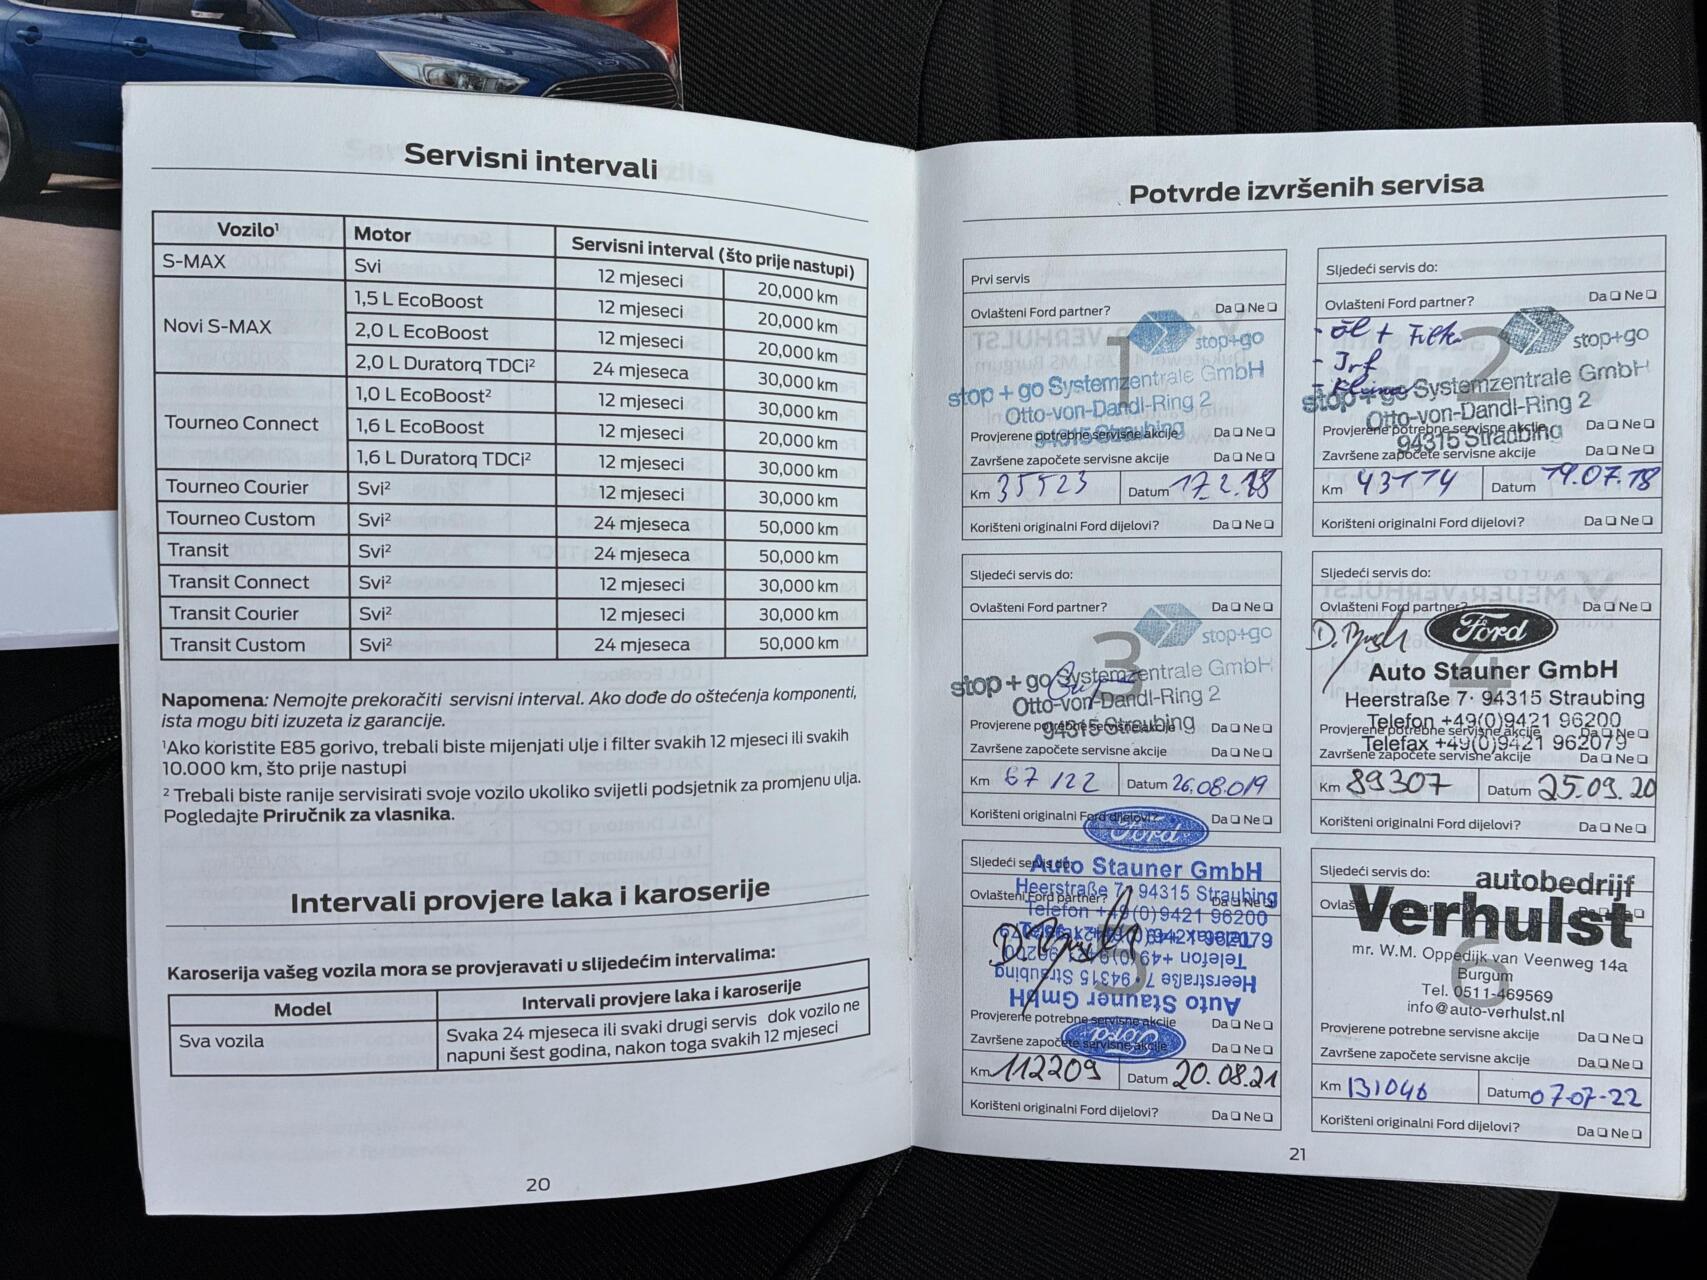 Servisni intervali
Vozilo¹ Motor Servisni interval (što prije nastupi)
S-MAX Svi 12 mjeseci 20,000 km
Novi S-MAX 1,5 L EcoBoost 12 mjeseci 20,000 km
2,0 L EcoBoost 12 mjeseci 20,000 km
2,0 L Duratorq TDCi² 24 mjeseca 30,000 km
Tourneo Connect 1,0 L EcoBoost² 12 mjeseci 30,000 km
1,6 L EcoBoost 12 mjeseci 20,000 km
1,6 L Duratorq TDCi² 12 mjeseci 30,000 km
Tourneo Courier Svi² 12 mjeseci 30,000 km
Tourneo Custom Svi² 24 mjeseca 50,000 km
Transit Svi² 24 mjeseca 50,000 km
Transit Connect Svi² 12 mjeseci 30,000 km
Transit Courier Svi² 12 mjeseci 30,000 km
Transit Custom Svi² 24 mjeseca 50,000 km
Napomena: Nemojte prekoračiti servisni interval. Ako dođe do oštećenja komponenti,
ista mogu biti izuzeta iz garancije.
¹Ako koristite E85 gorivo, trebali biste mijenjati ulje i filter svakih 12 mjeseci ili svakih
10.000 km, što prije nastupi
² Trebali biste ranije servisirati svoje vozilo ukoliko svijetli podsjetnik za promjenu ulja.
Pogledajte Priručnik za vlasnika.
Intervali provjere laka i karoserije
Karoserija vašeg vozila mora se provjeravati u slijedećim intervalima:
Model Intervali provjere laka i karoserije
Sva vozila Svaka 24 mjeseca ili svaki drugi servis dok vozilo ne
napuni šest godina, nakon toga svakih 12 mjeseci
20
Potvrde izvršenih servisa
Prvi servis
Ovlašteni Ford partner? Da Ne
1
stop+go
stop + go Systemzentrale GmbH
Otto-von-Dandl-Ring 2
94315 Straubing
Provjerene potrebne servisne akcije Da Ne
Završene započete servisne akcije Da Ne
Km 35523 Datum 17.2.18
Korišteni originalni Ford dijelovi? Da Ne
Sljedeći servis do:
Ovlašteni Ford partner? Da Ne
2
- Öl + Filt
stop+go
stop + go Systemzentrale GmbH
Otto-von-Dandl-Ring 2
94315 Straubing
Provjerene potrebne servisne akcije Da Ne
Završene započete servisne akcije Da Ne
Km 43174 Datum 19.07.18
Korišteni originalni Ford dijelovi? Da Ne
Sljedeći servis do:
Ovlašteni Ford partner? Da Ne
3
stop+go
stop + go Systemzentrale GmbH
Otto-von-Dandl-Ring 2
94315 Straubing
Provjerene potrebne servisne akcije Da Ne
Završene započete servisne akcije Da Ne
Km 67122 Datum 26.08.019
Korišteni originalni Ford dijelovi? Da Ne
Sljedeći servis do:
Ovlašteni Ford partner? Da Ne
4
Ford
Auto Stauner GmbH
Heerstraße 7 · 94315 Straubing
Telefon +49(0)9421 96200
Telefax +49(0)9421 962079
Provjerene potrebne servisne akcije Da Ne
Završene započete servisne akcije Da Ne
Km 89307 Datum 25.09.20
Korišteni originalni Ford dijelovi? Da Ne
Ford
Sljedeći servis do:
Auto Stauner GmbH
Heerstraße 7 · 94315 Straubing
Ovlašteni Ford partner? Da Ne
Telefon +49(0)9421 96200
Telefax +49(0)9421 962079
5
Telefon +49(0)9421 96200
Heerstraße 7 · 94315 Straubing
Auto Stauner GmbH
Ford
Provjerene potrebne servisne akcije Da Ne
Završene započete servisne akcije Da Ne
Km 112209 Datum 20.08.21
Korišteni originalni Ford dijelovi? Da Ne
Sljedeći servis do:
autobedrijf
Verhulst
mr. W.M. Oppedijk van Veenweg 14a
Burgum
6
Tel. 0511-469569
info@auto-verhulst.nl
Provjerene potrebne servisne akcije Da Ne
Završene započete servisne akcije Da Ne
Km 131046 Datum 07-07-22
Korišteni originalni Ford dijelovi? Da Ne
21